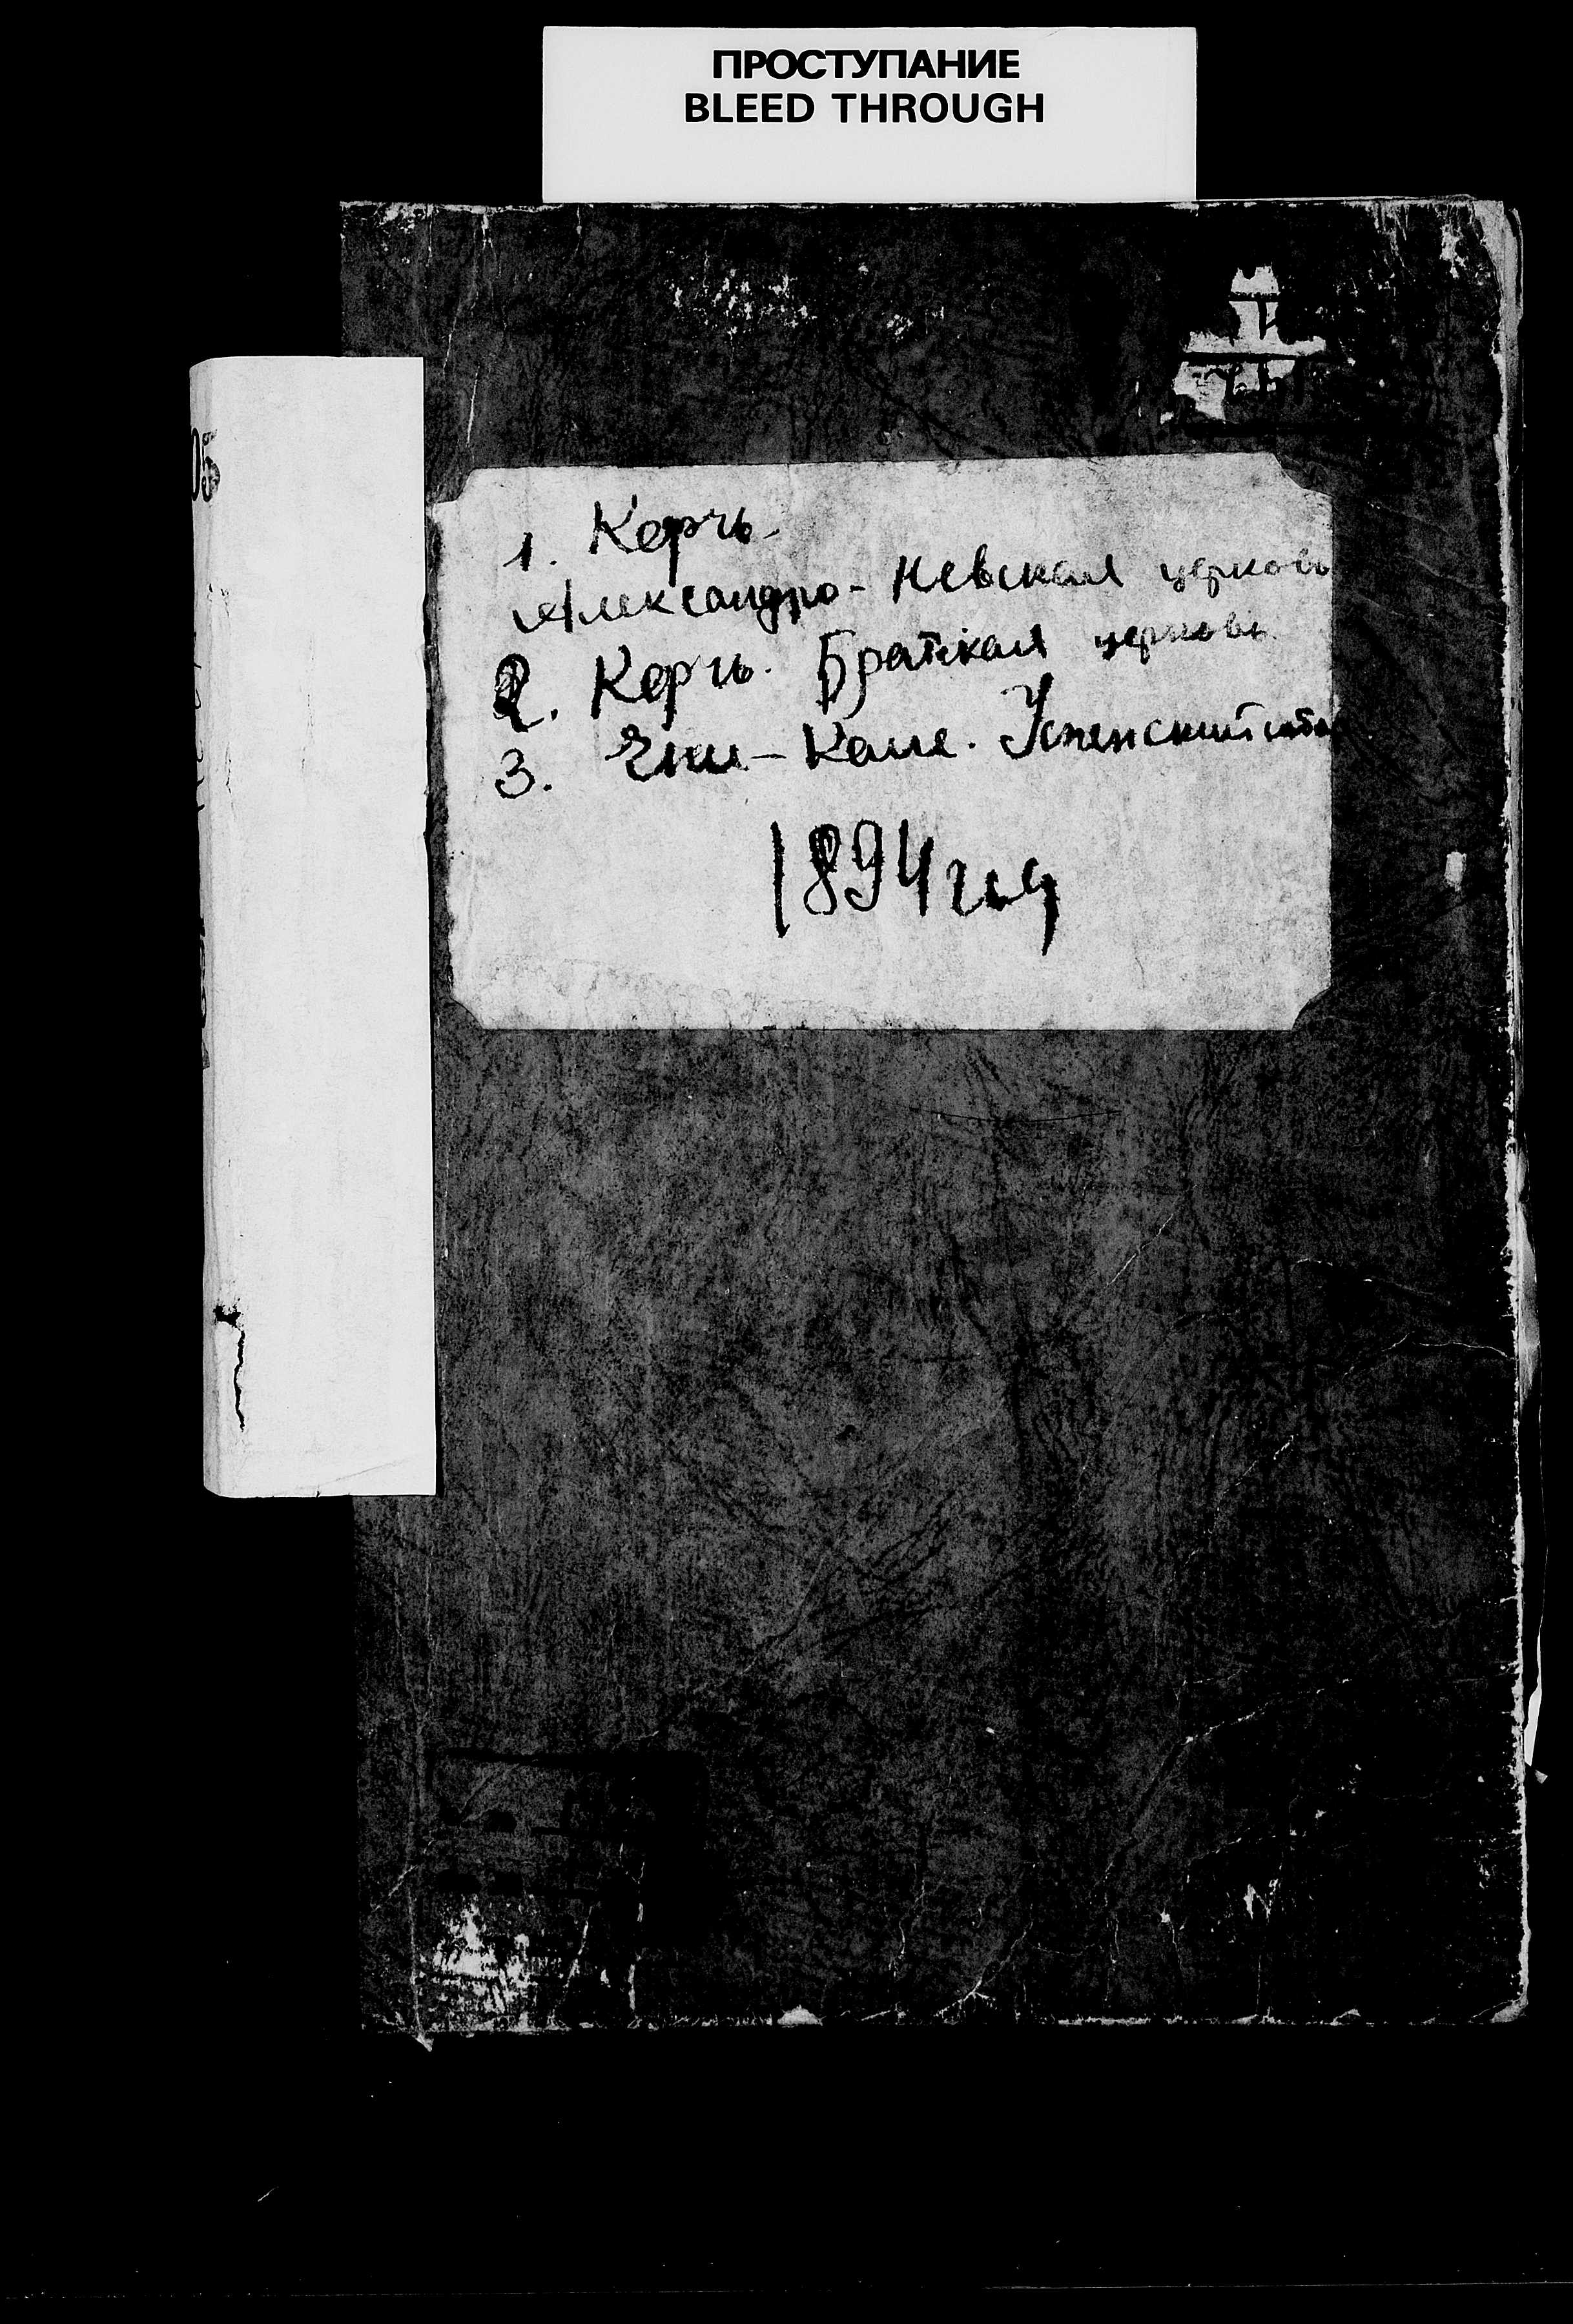 ПРОСТУПАНИЕ
BLEED THROUGH
05
1. Керчь.
Александро-Невская церковь
2. Керчь. Братская церковь
3. Ени-Кале. Успенский
1894 год